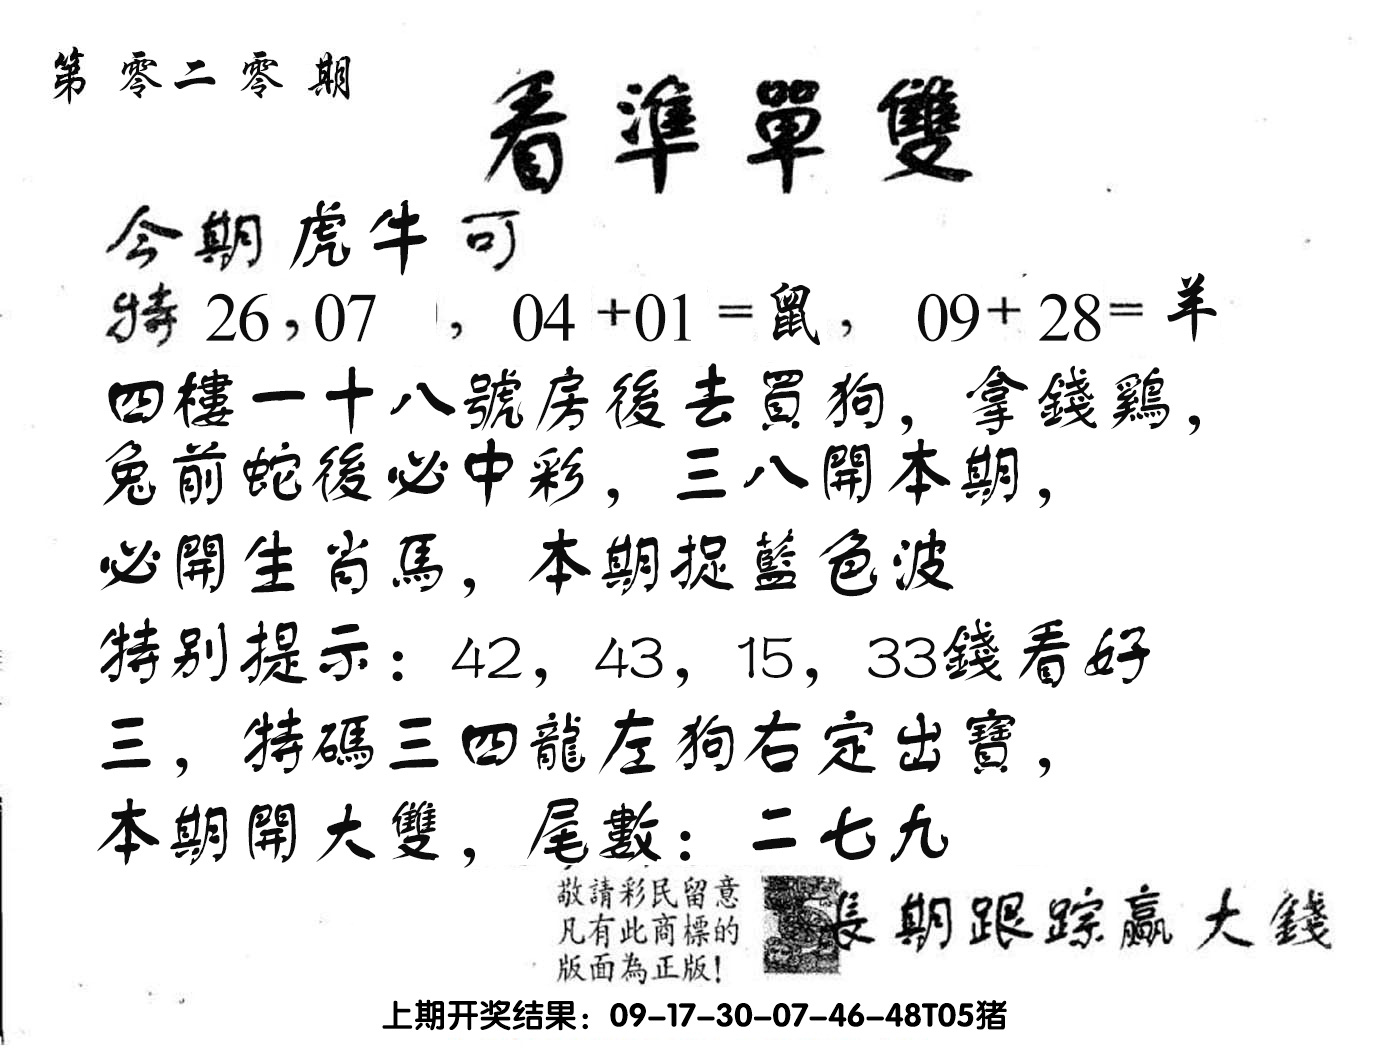 第零二零期
看準單雙
今期虎牛可
特26,07 , 04+01=鼠, 09+28=羊
四樓一十八號房後去買狗,拿錢鷄,
兔前蛇後必中彩,三八開本期,
必開生肖馬,本期捉藍色波
特别提示:42,43,15,33錢看好
三,特碼三四龍左狗右定出寶,
本期開大雙,尾數:二七九
敬請彩民留意
凡有此商標的
版面為正版!
長期跟踪贏大錢
上期开奖结果:09-17-30-07-46-48T05猪